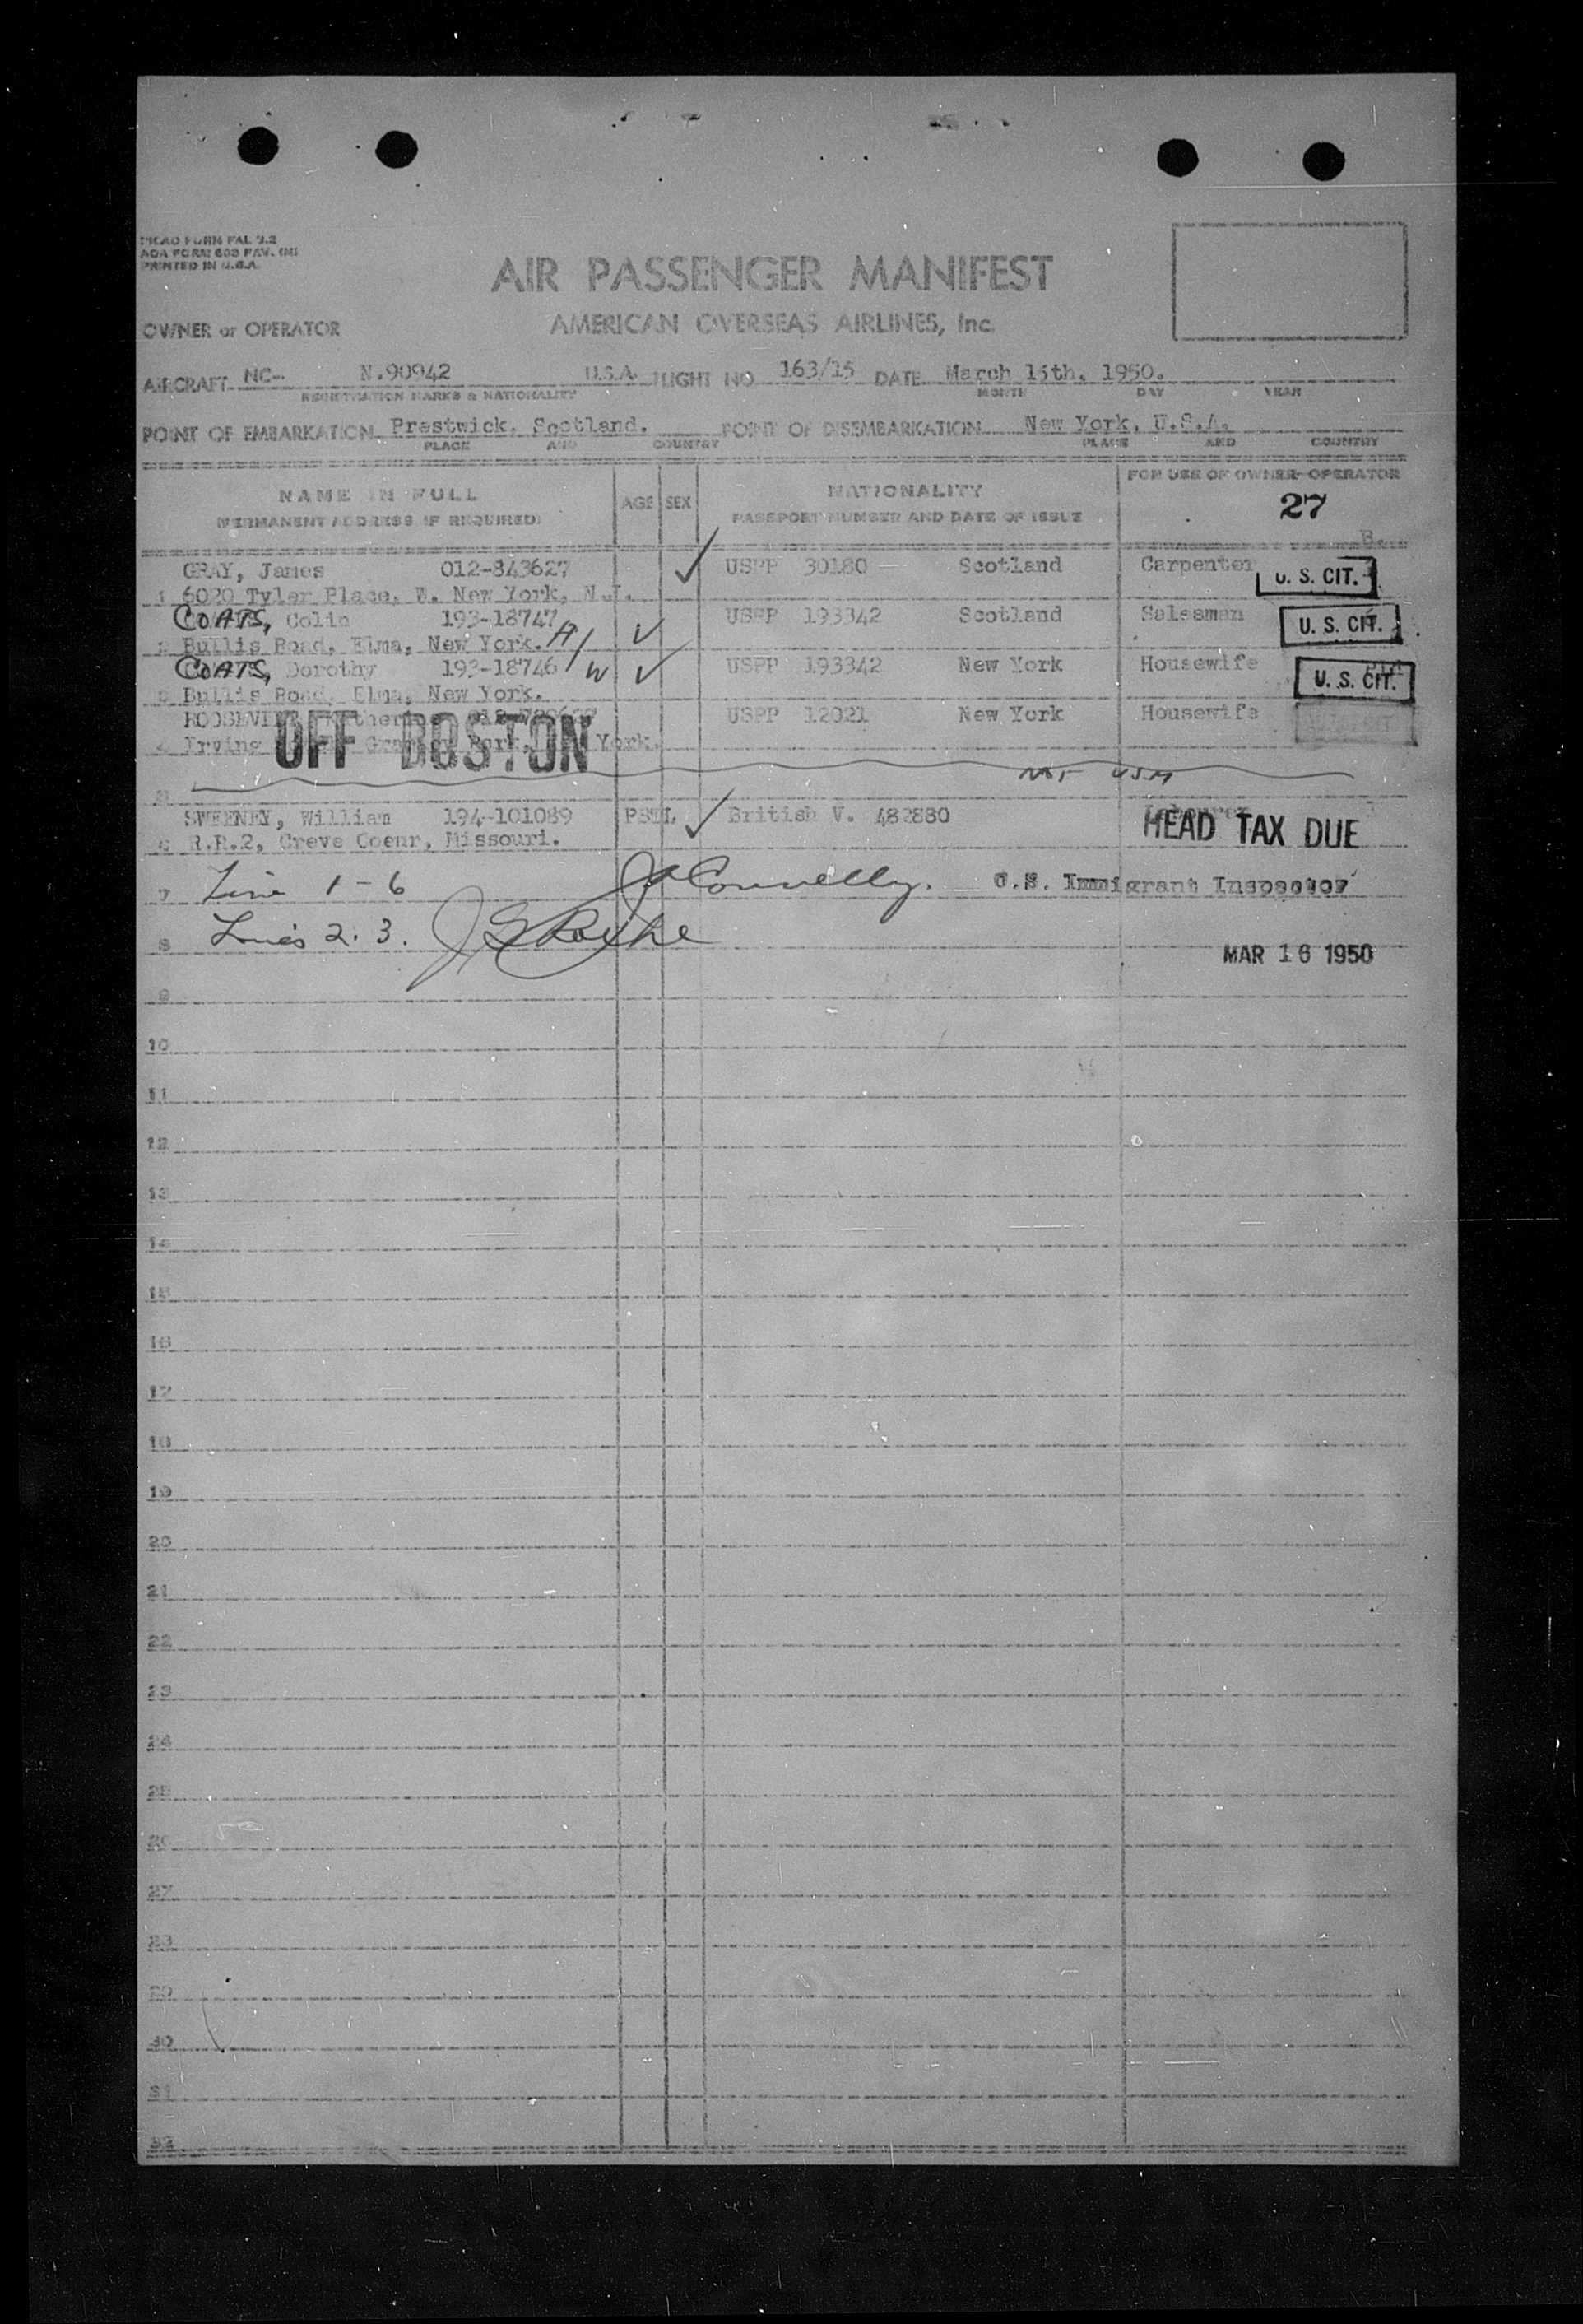 ICAO FORM FAL 3.2
AOA FORM 603
PRINTED IN U.S.A.
AIR PASSENGER MANIFEST
OWNER or OPERATOR AMERICAN OVERSEAS AIRLINES, Inc.
AIRCRAFT NC- N.90942 U.S.A. FLIGHT NO 163/15 DATE March 15th, 1950.
REGISTRATION MARKS & NATIONALITY MONTH DAY YEAR
POINT OF EMBARKATION Prestwick, Scotland. POINT OF DISEMBARKATION New York, U.S.A.
PLACE AND COUNTRY PLACE AND COUNTRY
NAME IN FULL AGE SEX NATIONALITY FOR USE OF OWNER-OPERATOR
(PERMANENT ADDRESS IF REQUIRED) PASSPORT NUMBER AND DATE OF ISSUE 27
B.
GRAY, James 012-843627 USPP 30180 Scotland Carpenter U. S. CIT.
1 6020 Tyler Place, W. New York, N.J.
COATS, Colin 193-18747 USPP 193342 Scotland Salesman U. S. CIT.
2 Bullis Road, Elma, New York. H
COATS, Dorothy 193-18746 W USPP 193342 New York Housewife U. S. CIT.
3 Bullis Road, Elma, New York.
USPP 12021 New York Housewife
4 Irving York.
OFF BOSTON
5
SWEENEY, William 194-101089 British V. 482880 Labourer
HEAD TAX DUE
6 R.R.2, Creve Coeur, Missouri.
7 Line 1-6 Connelly. U.S. Immigrant Inspector
8 Lines 2. 3.
MAR 16 1950
9
10
11
12
13
14
15
16
17
18
19
20
21
22
23
24
25
26
27
28
29
30
31
32